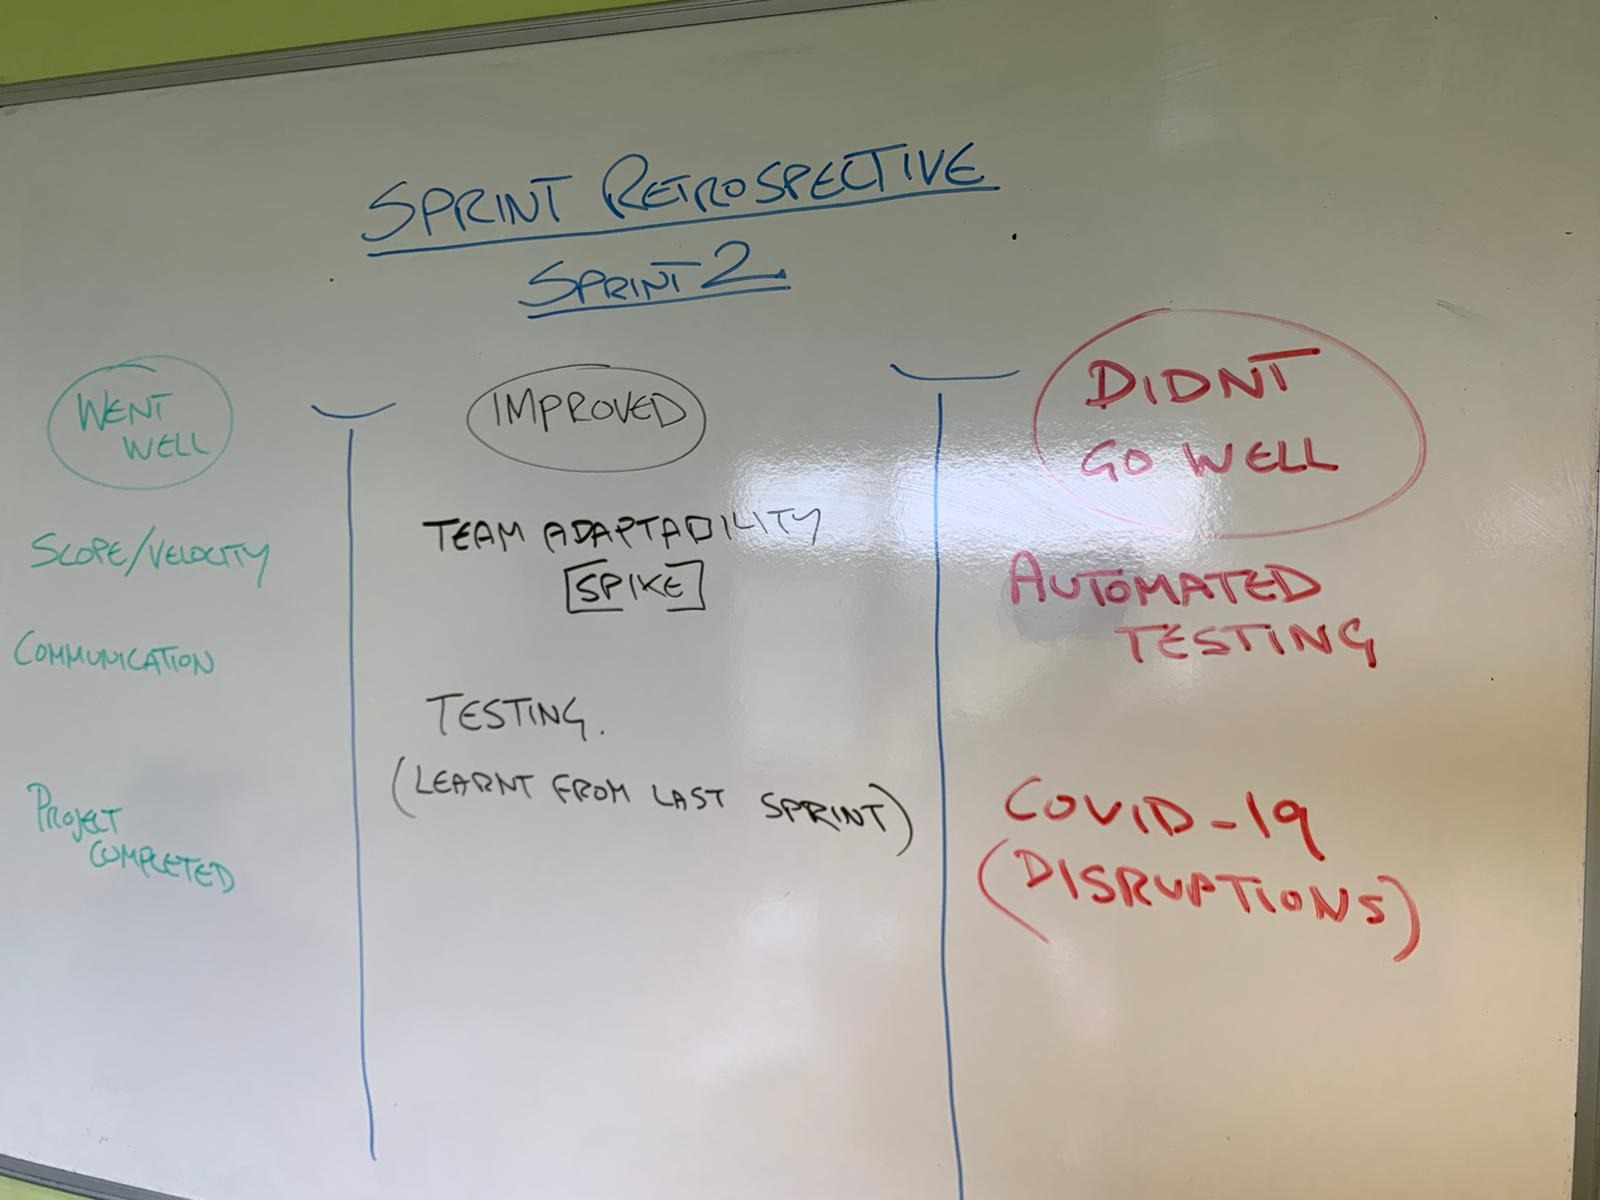 SPRINT RETROSPECTIVE
SPRINT 2
WENT
WELL
SCOPE/VELOCITY
COMMUNICATION
PROJECT
COMPLETED
IMPROVED
TEAM ADAPTABILITY
[SPIKE]
TESTING.
(LEARNT FROM LAST SPRINT)
DIDNT
GO WELL
AUTOMATED
TESTING
COVID-19
(DISRUPTIONS)